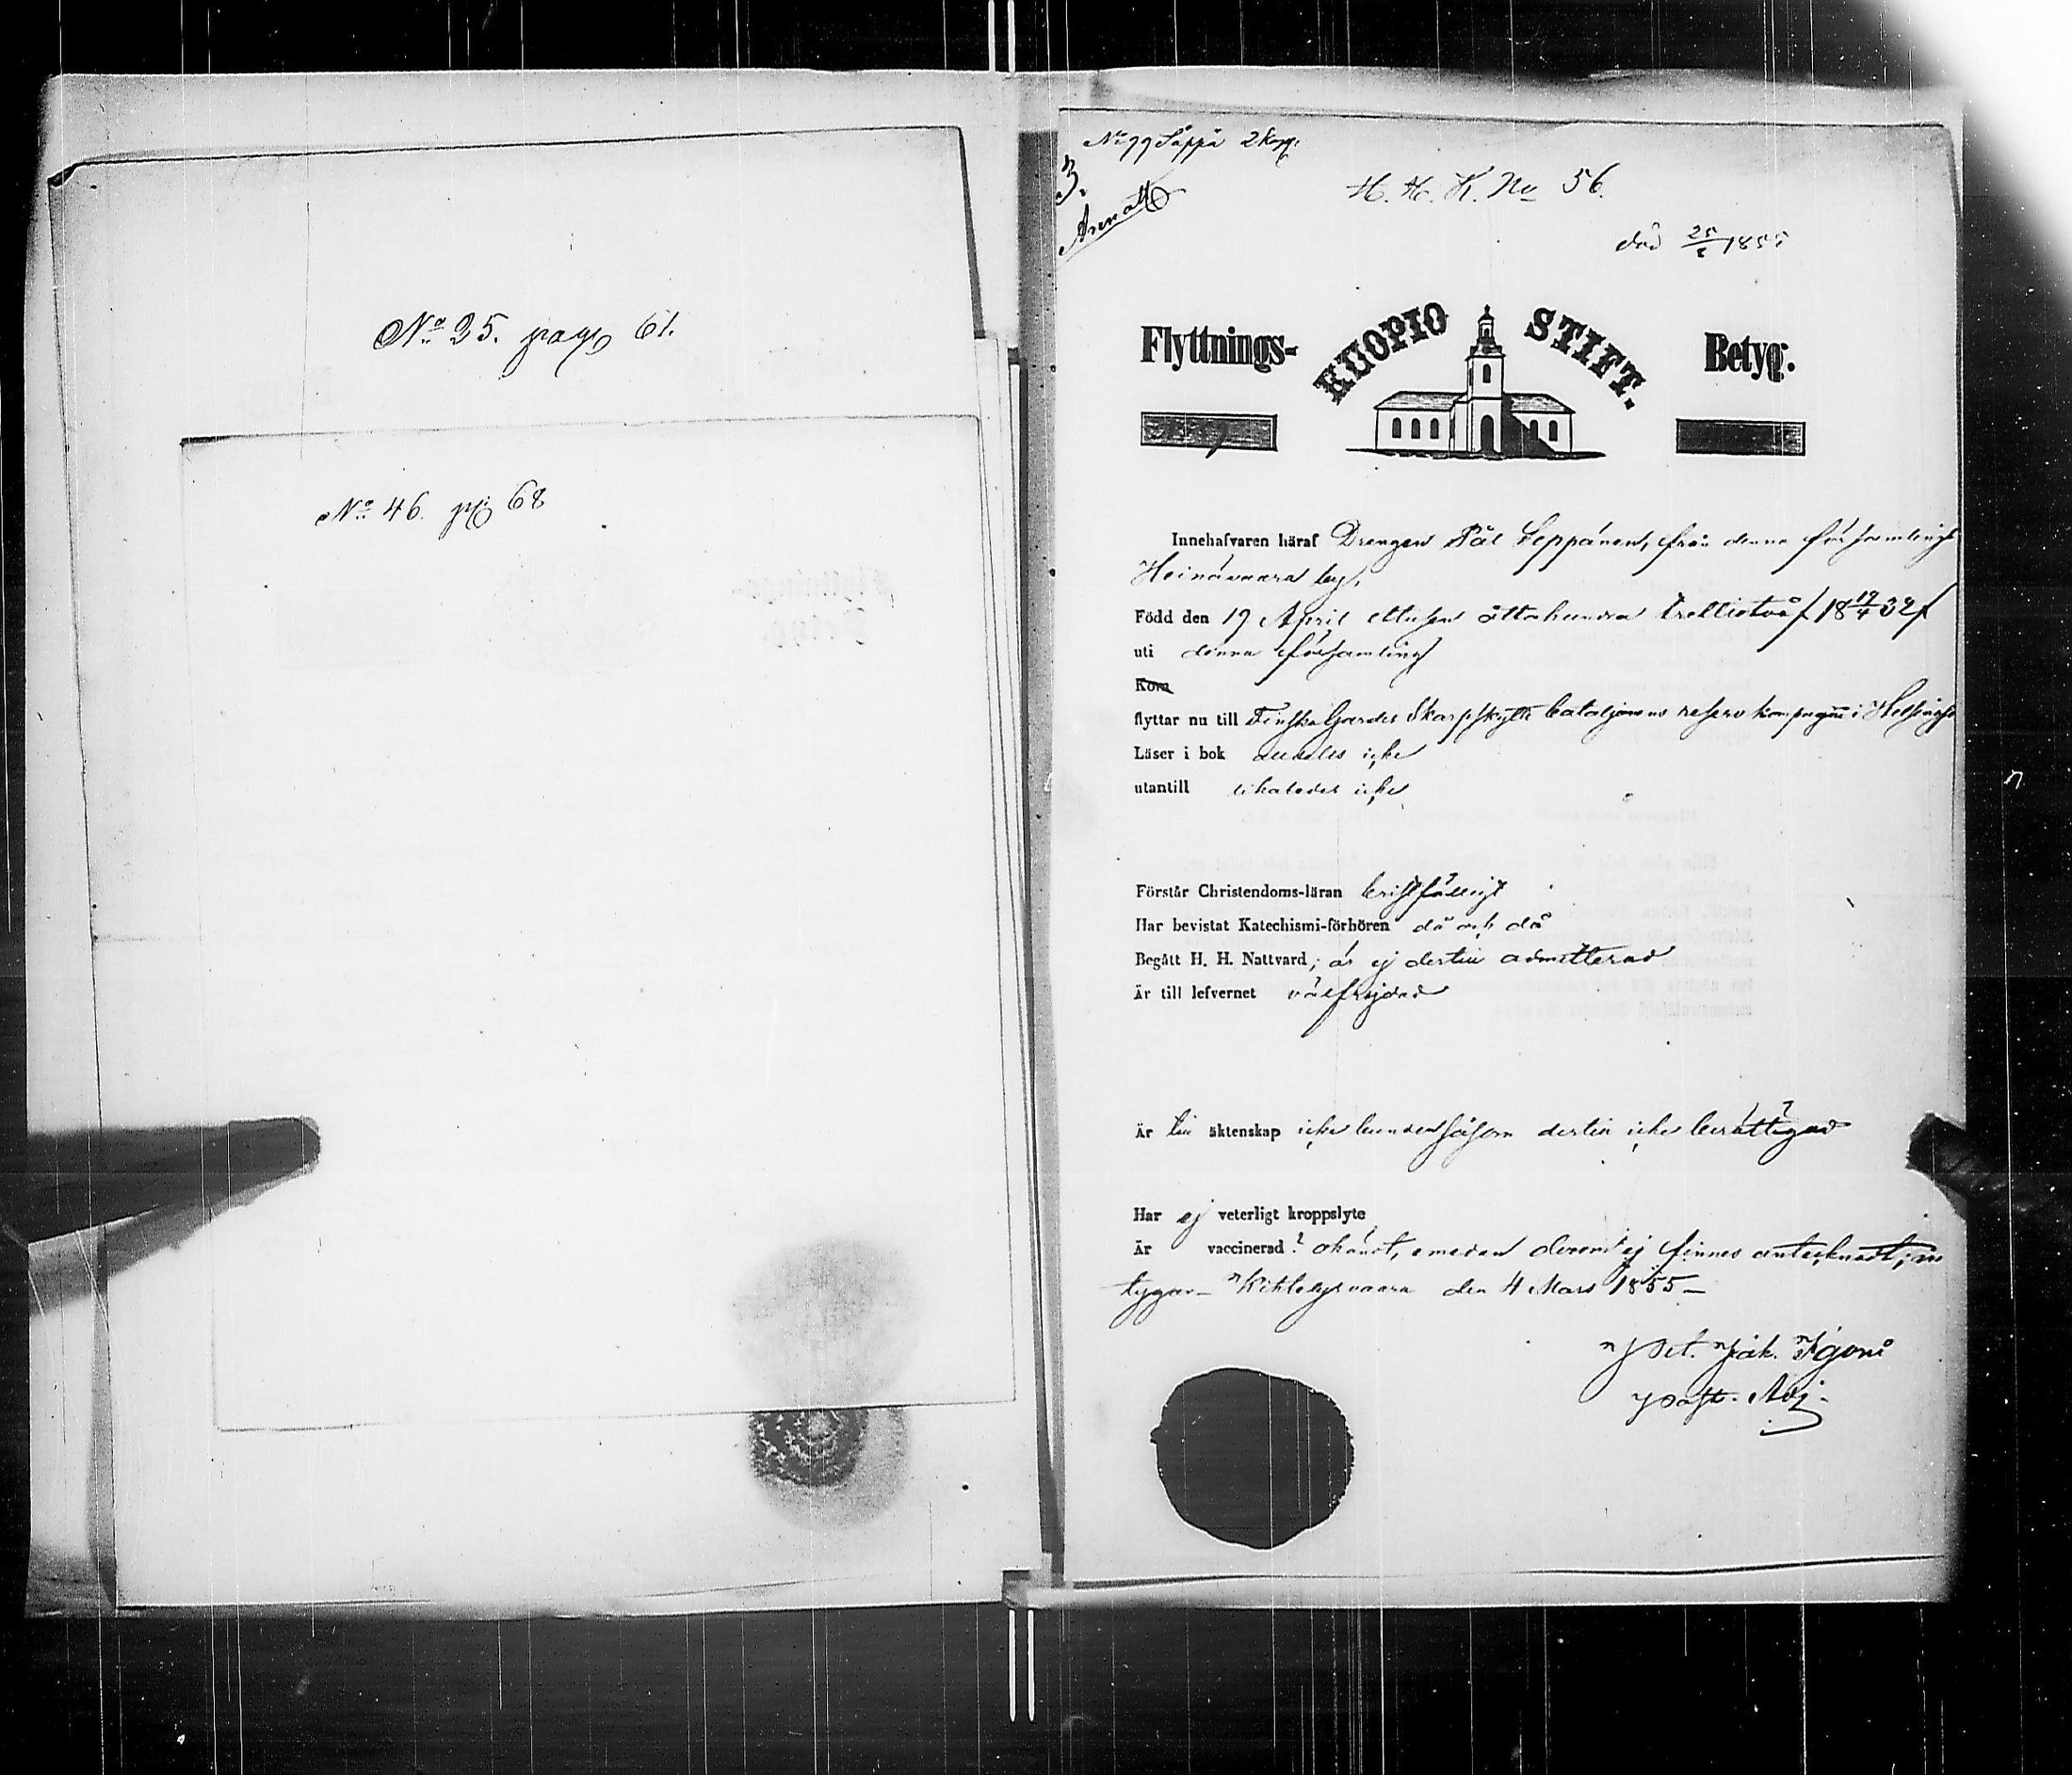 No 25. pag 61.
No 46. pg 68
No 99 Säppä 2 Komp.
3.
H. H. K. No 56.
död 25/6 1855
Flyttnings- KUOPIO STIFT. Betyg.
Innehafvaren häraf Drengen Pål Seppänen, från denna församlings
Heinävaara by,
Född den 19 April ettusen åttahundra trettiotvå / 18 19/4 32 /
uti denna församling
Kom
flyttar nu till Finska Gardes Skarpskytte bataljonens reserv kompagnie i Helsingfo
Läser i bok aldeles icke
utantill likaledes icke
Förstår Christendoms-läran bristfälligt
Har bevistat Katechismi-förhören då och då
Begått H. H. Nattvard; är ej dertill admitterad
Är till lefvernet välfrejdad
Är till äktenskap icke bunden såsom dertill icke berättigad
Har ej veterligt kroppslyte
Är vaccinerad? okändt, emedan derom ej finnes antecknadt;
tygar _ Kihtelysvaara den 4 Mars 1855 _
Pet. Jak.
Past. Adj.